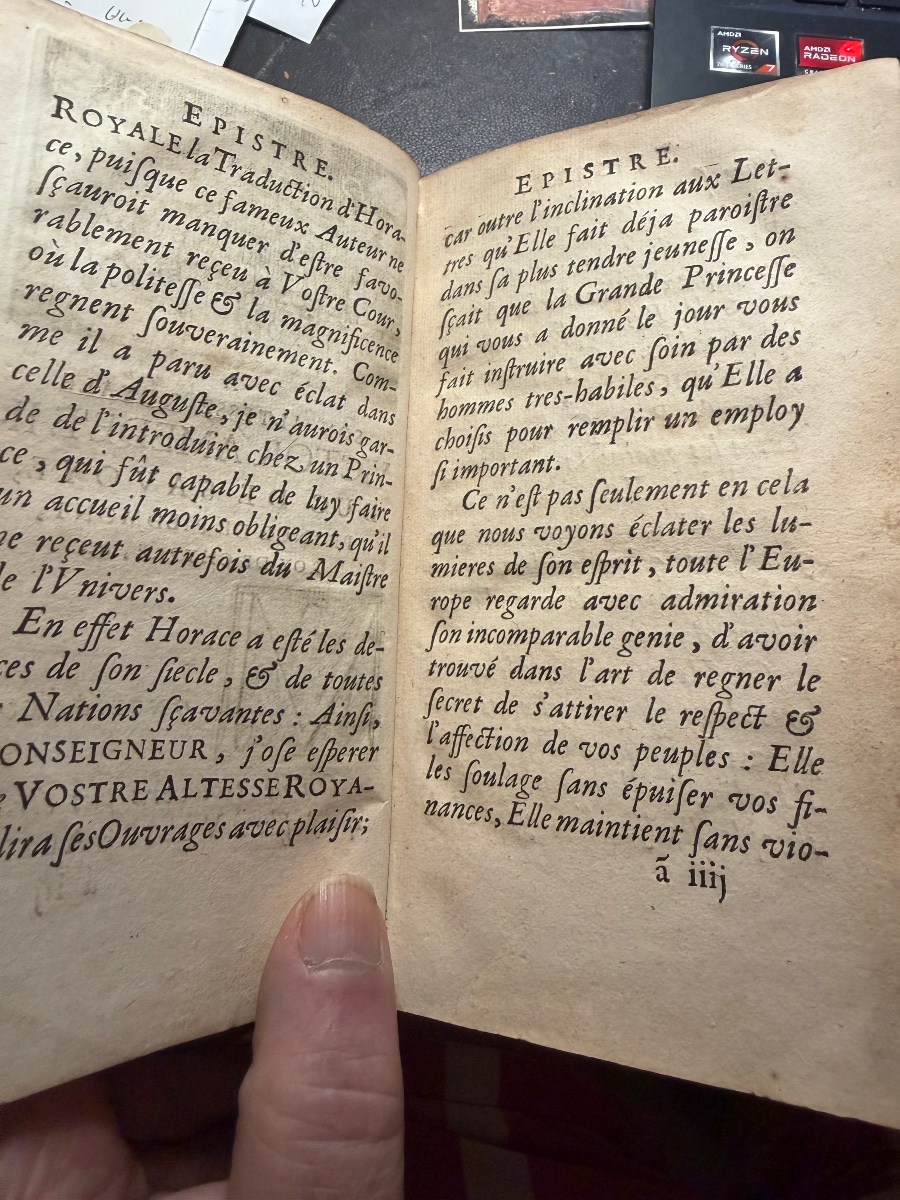 EPISTRE.
ROYALE la Traduction d'Hora-
ce, puiſque ce fameux Auteur ne
ſçauroit manquer d'eſtre favo-
rablement reçeu à Voſtre Cour,
où la politeſſe & la magnificence
regnent ſouverainement. Com-
me il a paru avec éclat dans
celle d'Auguſte, je n'aurois gar-
de de l'introduire chez un Prin-
ce, qui fût capable de luy faire
un accueil moins obligeant, qu'il
ne reçeut autrefois du Maiſtre
de l'Vnivers.
En effet Horace a eſté les de-
ces de ſon ſiecle, & de toutes
Nations ſçavantes : Ainſi,
ONSEIGNEUR, j'oſe eſperer
VOSTRE ALTESSE ROYA-
lira ſes Ouvrages avec plaiſir;
EPISTRE.
car outre l'inclination aux Let-
tres qu'Elle fait déja paroiſtre
dans ſa plus tendre jeuneſſe, on
ſçait que la Grande Princeſſe
qui vous a donné le jour vous
fait inſtruire avec ſoin par des
hommes tres-habiles, qu'Elle a
choiſis pour remplir un employ
ſi important.
Ce n'eſt pas ſeulement en cela
que nous voyons éclater les lu-
mieres de ſon eſprit, toute l'Eu-
rope regarde avec admiration
ſon incomparable genie, d'avoir
trouvé dans l'art de regner le
ſecret de s'attirer le reſpect &
l'affection de vos peuples : Elle
les ſoulage ſans épuiſer vos fi-
nances, Elle maintient ſans vio-
ã iiij
AMD
RYZEN
7
AMD
RADEON